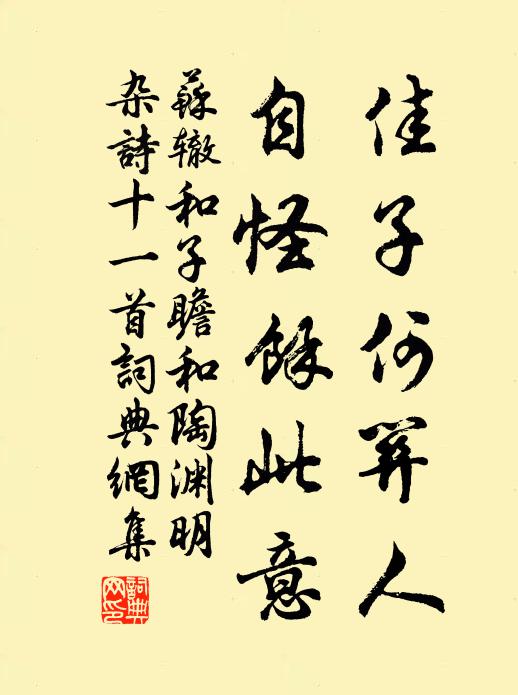 佳子何關人
自怪餘此意
蘇辙和子瞻和陶渊明
杂詩十一首詞典網集
詞典网印